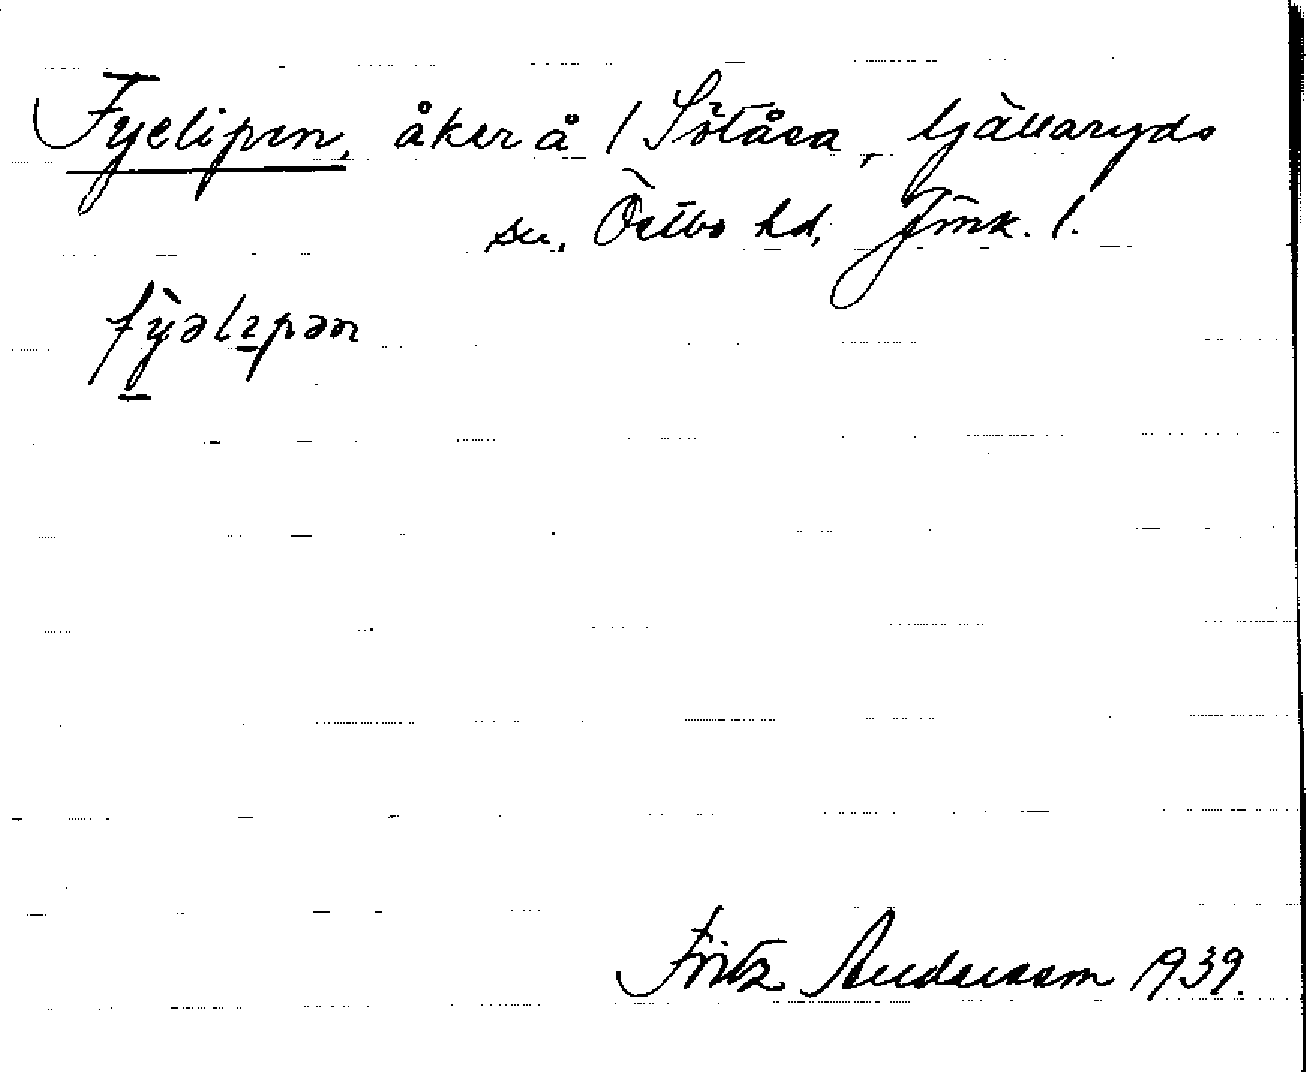 Fyelipen, åker å / Sötåsa, Gällaryds
sn, Östbo hd, Jmk. l.
fỳəlɩpən
Fritz Andersson 1939.